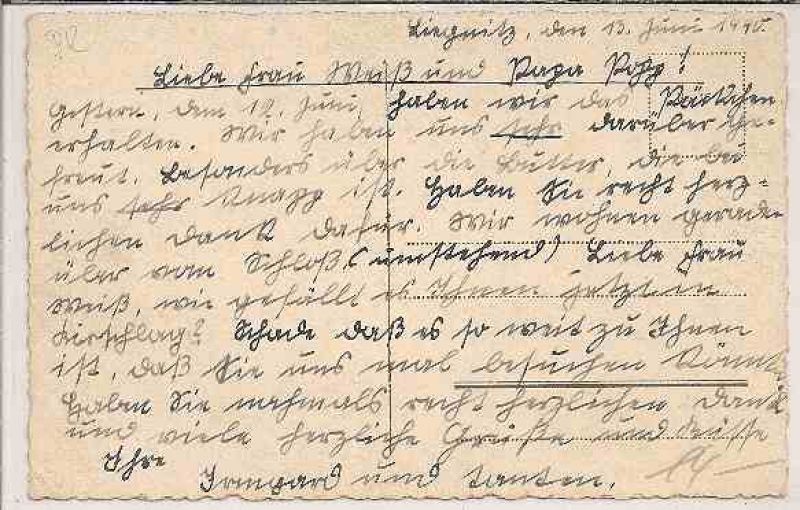 Liegnitz, den 13. Juni 1940.
Liebe Frau Weiß und Papa Popp!
Gestern, dem 12. Juni, haben wir das Päckchen
erhalten. Wir haben uns sehr darüber ge-
freut. Besonders über die Butter, die bei
uns sehr knapp ist. Haben Sie recht herz-
lichen Dank dafür. Wir wohnen gerade
über vom Schloß. (umstehend) Liebe Frau
Weiß, wie gefällt es Ihnen jetzt in
Kirschlag? Schade daß es so weit zu Ihnen
ist, daß Sie uns mal besuchen könnt.
Haben Sie nochmals recht herzlichen Dank
und viele herzliche Grüße und Küsse
Ihre
Irmgard und Tanten.